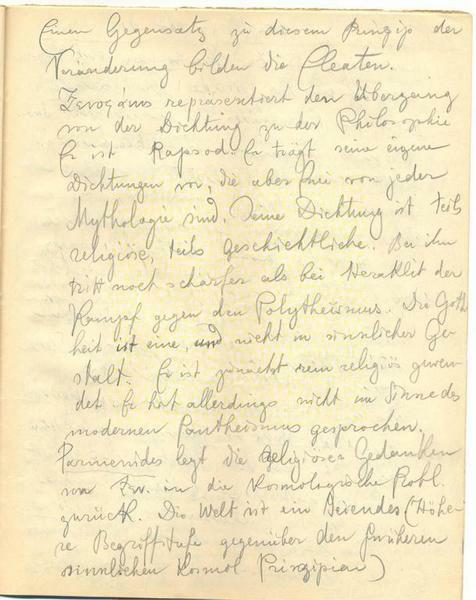 Einen Gegensatz zu diesem Prinzip der
Veränderung bilden die Eleaten.
repräsentiert den Übergang
von der Dichtung zu der Philosophie
Er ist Rapsod. Er trägt seine eigene
Dichtungen vor, die aber frei von jeder
Mythologie sind. Seine Dichtung ist teils
religiöse, teils geschichtliche. Bei ihm
tritt noch schärfer als bei Heraklit der
Kampf gegen den Polytheismus. Die Gott
heit ist eine, und nicht in sinnlicher Ge-
stalt. Er ist zunächst rein religiös gewen
det Er hat allerdings nicht im Sinne des
modernen Pantheismus gesprochen.
Parmenides legt die religiösen Gedanken
von Xen. in die Kosmologische Probl.
zurück. Die Welt ist ein Seiendes (Höhe-
re Begriffstufe gegenüber den früheren
sinnlichen Kosmol. Prinzipien)